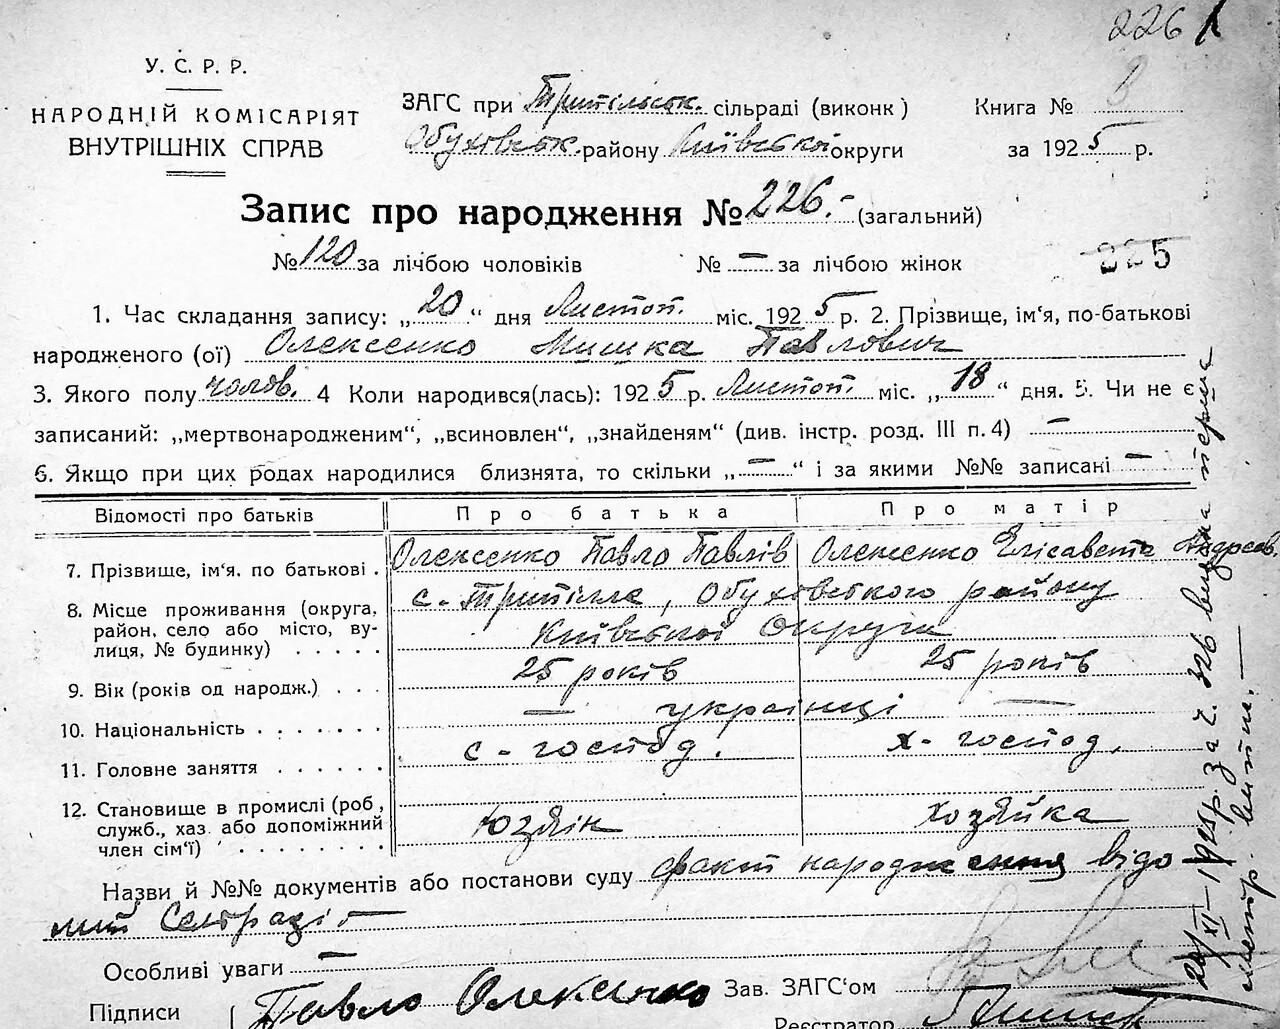 226
У. С. Р. Р.
НАРОДНІЙ КОМІСАРІЯТ
ВНУТРІШНІХ СПРАВ
ЗАГС при Трипільськ. сільраді (виконк)
Книга № 3
Обуховськ. району Київської округи
за 1925 р.
Запис про народження № 226.- (загальний)
№ 120 за лічбою чоловіків № — за лічбою жінок
225
1. Час складання запису: „20“ дня Листоп. міс. 1925 р. 2. Прізвище, ім'я, по-батькові
народженого (ої) Олексенко Мишка Павлович
3. Якого полу чолов. 4 Коли народився(лась): 1925 р. Листоп. міс. „18“ дня. 5. Чи не є
записаний: „мертвонародженим“, „всиновлен“, „знайденям“ (див. інстр. розд. III п. 4) —
6. Якщо при цих родах народилися близнята, то скільки „—“ і за якими №№ записані —
Відомості про батьків Про батька Про матір
7. Прізвище, ім'я, по батькові . Олексенко Павло Павлів Олексенко Елісавета Андреєв.
8. Місце проживання (округа, с. Трипілля, Обуховського району
район, село або місто, ву- Київської Округи
лиця, № будинку) . . . . .
9. Вік (років од народж.) . . . 25 років 25 років
10. Національність . . . . . . . — українці —
11. Головне заняття . . . . . . с-господ. х-господ.
12. Становище в промислі (роб,
служб., хаз. або допоміжний хозяйка
член сім'ї) . . . . . . . .
Назви й №№ документів або постанови суду факт народження відо
мий Сельраді
Особливі уваги —
Підписи Павло Олексенко Зав. ЗАГС'ом
Реєстратор